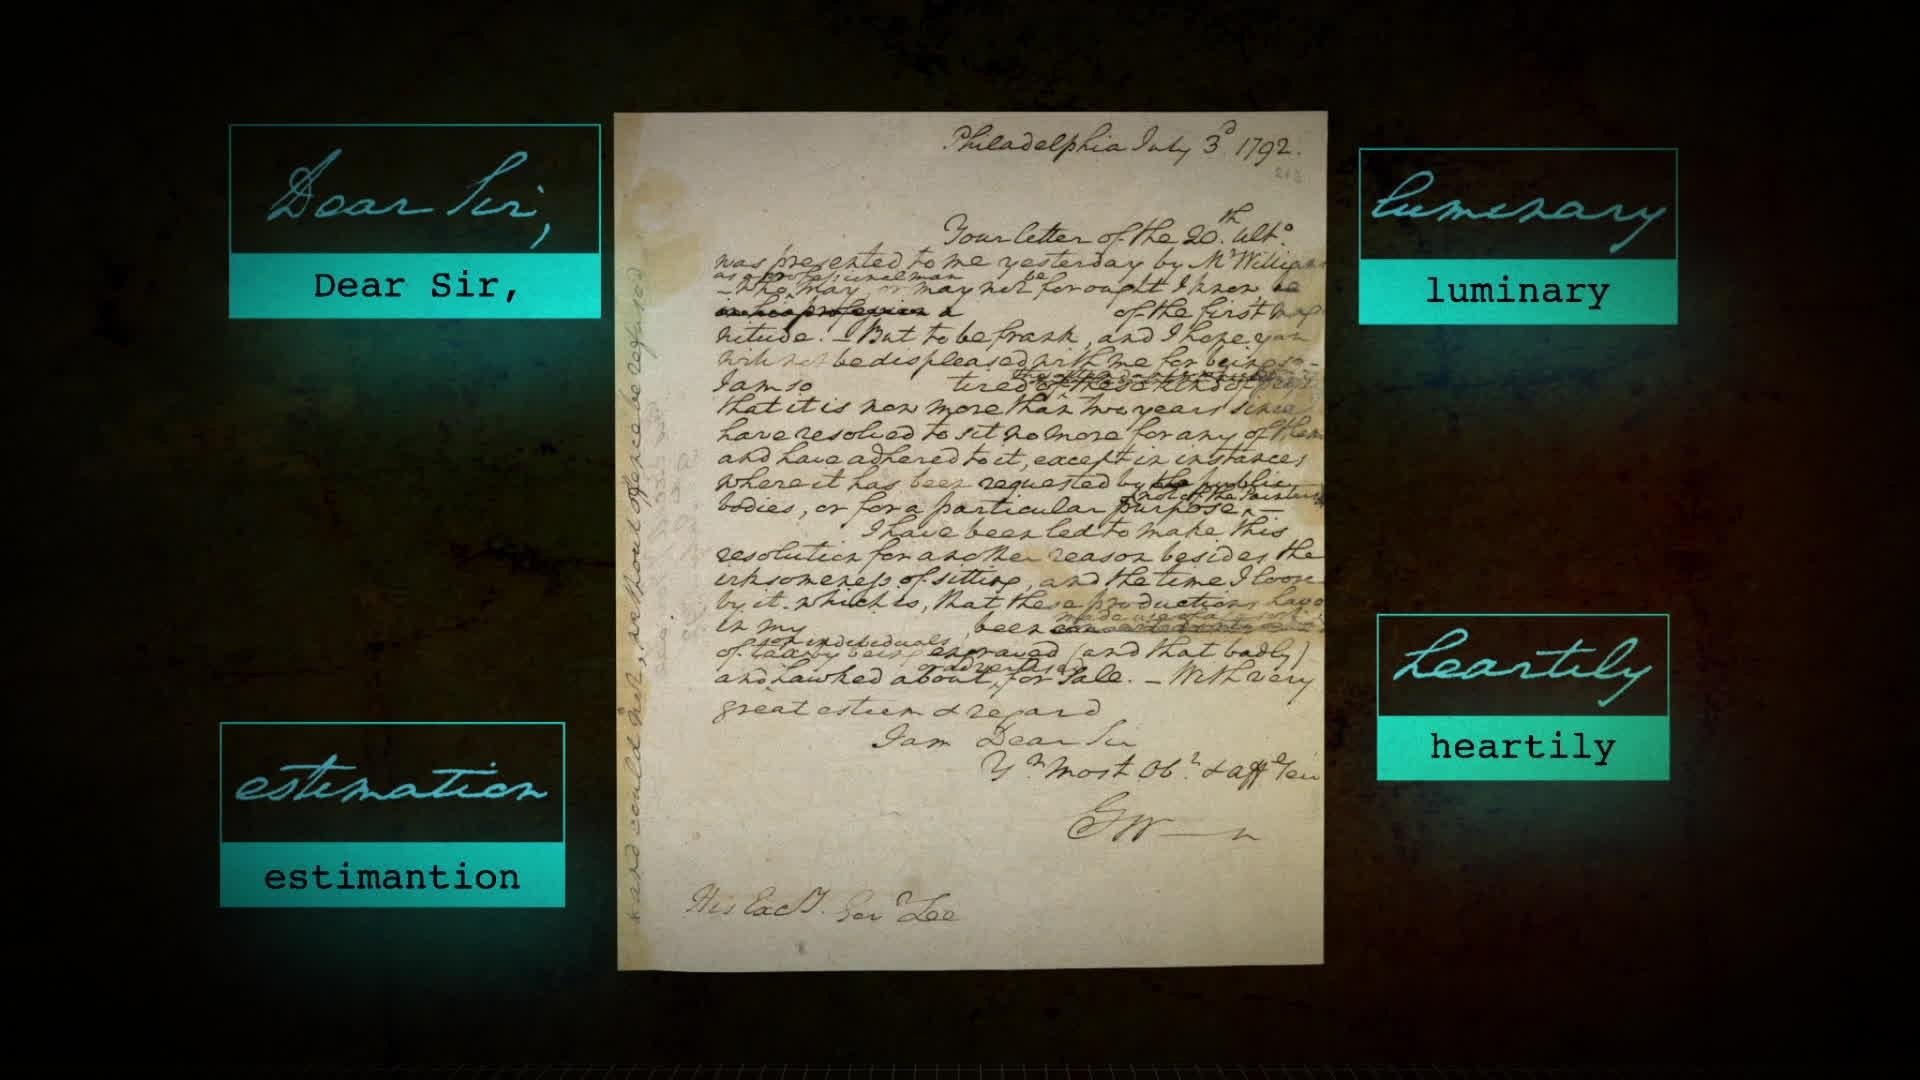 Dear Sir,
Dear Sir,
estimation
estimantion
Philadelphia July 3d 1792.
213
Your letter of the 20th Ulto
was presented to me yesterday by Mr Williams
as a professional man
-who may or may not be for ought I know
in his profession a of the first mag
nitude. - But to be frank, and I hope you
will not be displeased with me for being so -
I am so tired of these kind of
that it is now more than two years since
have resolved to sit no more for any of them
and have adhered to it, except in instances
where it has been requested by the public
not of the Painters
bodies, or for a particular purpose, -
I have been led to make this
resolution for another reason besides the
irksomeness of sitting, and the time I loose
by it. which is, that these productions have
made use of a
in my been
or individuals
of being engraved (and that badly)
or advertised
and hawked about, for Sale. - With very
great esteem & regard
I am Dear Sir
Yr most Obt & affte
GW—n
His Excy. Govr Lee
and could not, nor should offence be refused
luminary
luminary
heartily
heartily